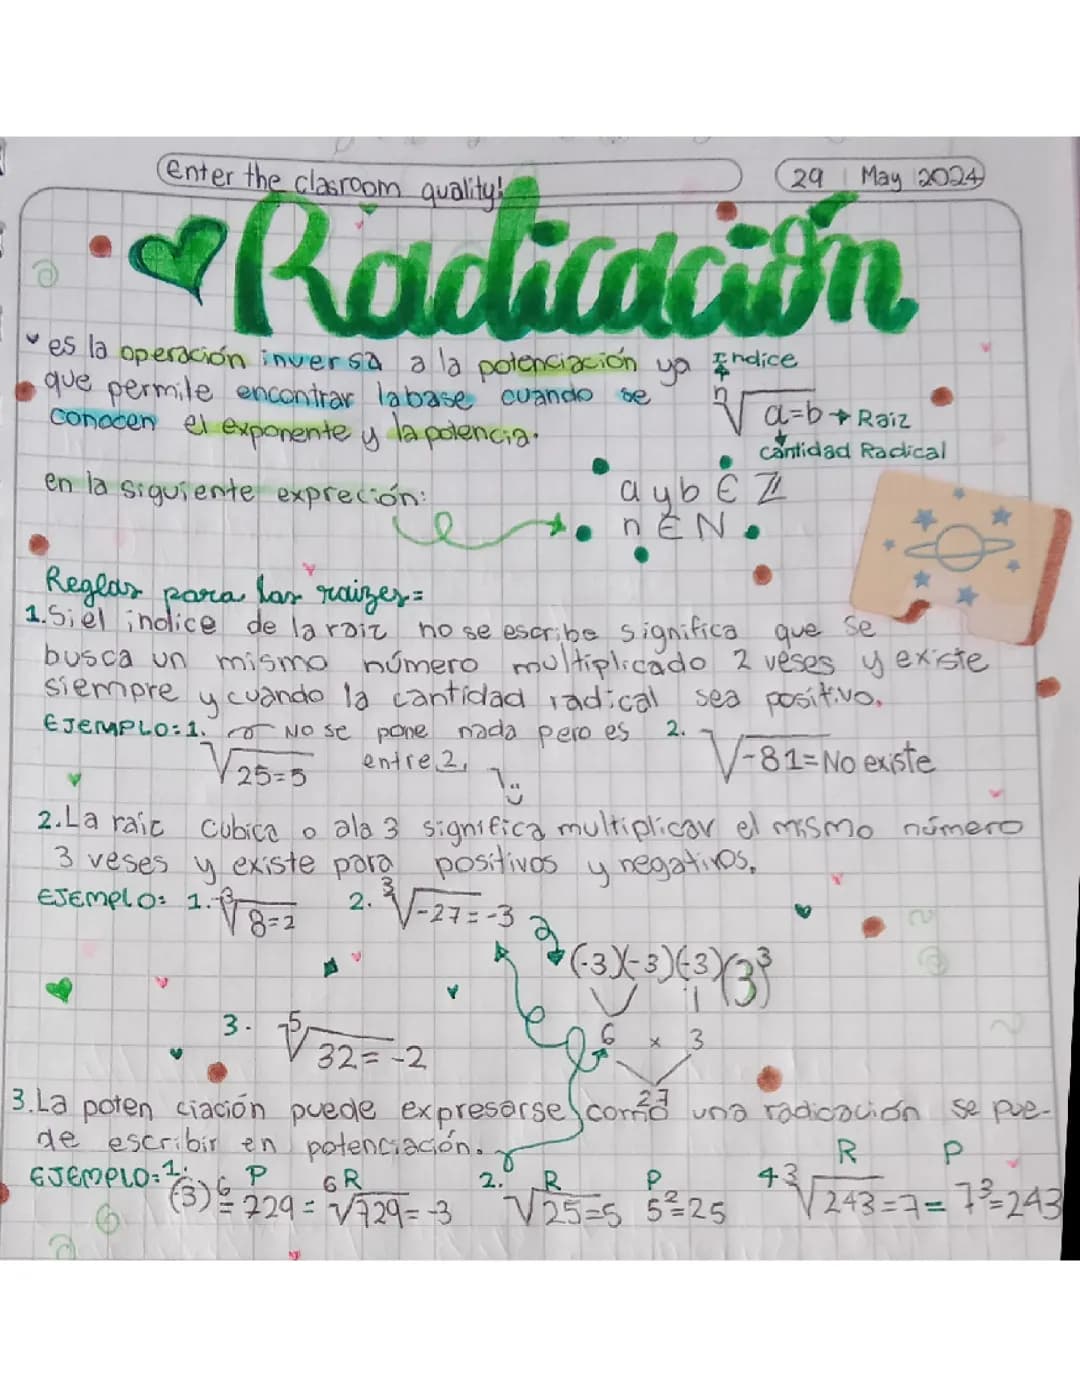 enter the clasroom quality!
29 May 2024
Radicación
es la operación inversa a la potenciación ya
que permite encontrar labase cuando se
conocen el exponente y la potencia.
Indice
n√a=b → Raiz
cantidad Radical
en la siguiente expreción:
a y b ∈ Z
n ∈ N
Reglas para las raizes=
1.Si el indice de la raiz no se escribe significa que se
busca un mismo número multiplicado 2 veses y existe
siempre y cuando la cantidad radical sea positivo.
EJEMPLO:1. No se pone nada pero es
entre 2,
√25=5
2. √-81=No existe
2.La raiz cubica o ala 3 significa multiplicar el mismo número
3 veses y existe para positivos y negativos.
EJEMPLO: 1. ³√8=2
2. ³√-27=-3
(-3)(-3)(-3)(3)³
6 x 3
27
3. ⁵√32=-2
3.La poten ciación puede expresarse como una radicación se pue-
de escribir en potenciación.
EJEMPLO:1. P 6R
(-3)⁶=729=√729=-3
2. R P
√25=5 5²=25
R P
4 ³√243=7=7³=243